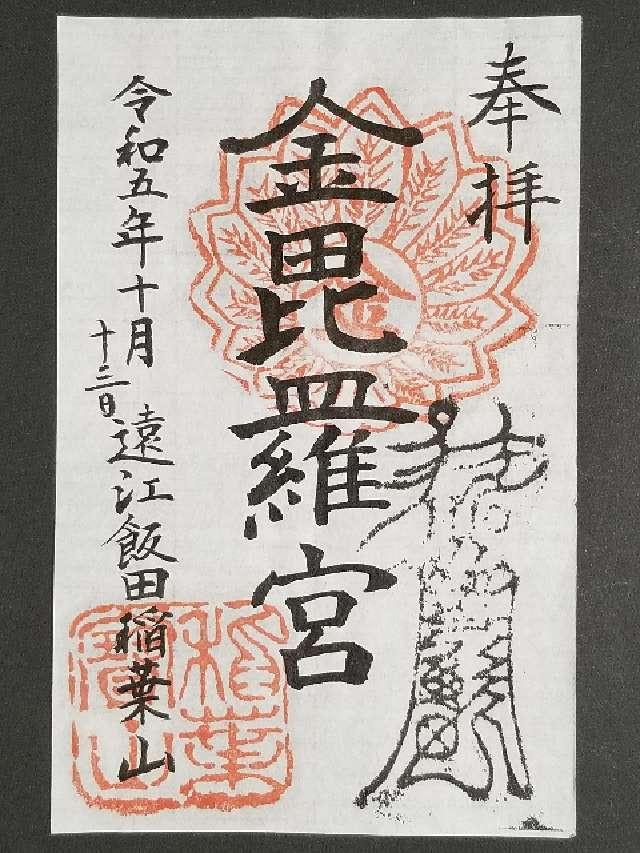 奉拝
金毘羅宮
令和五年十月
十三日
遠江飯田稲葉山